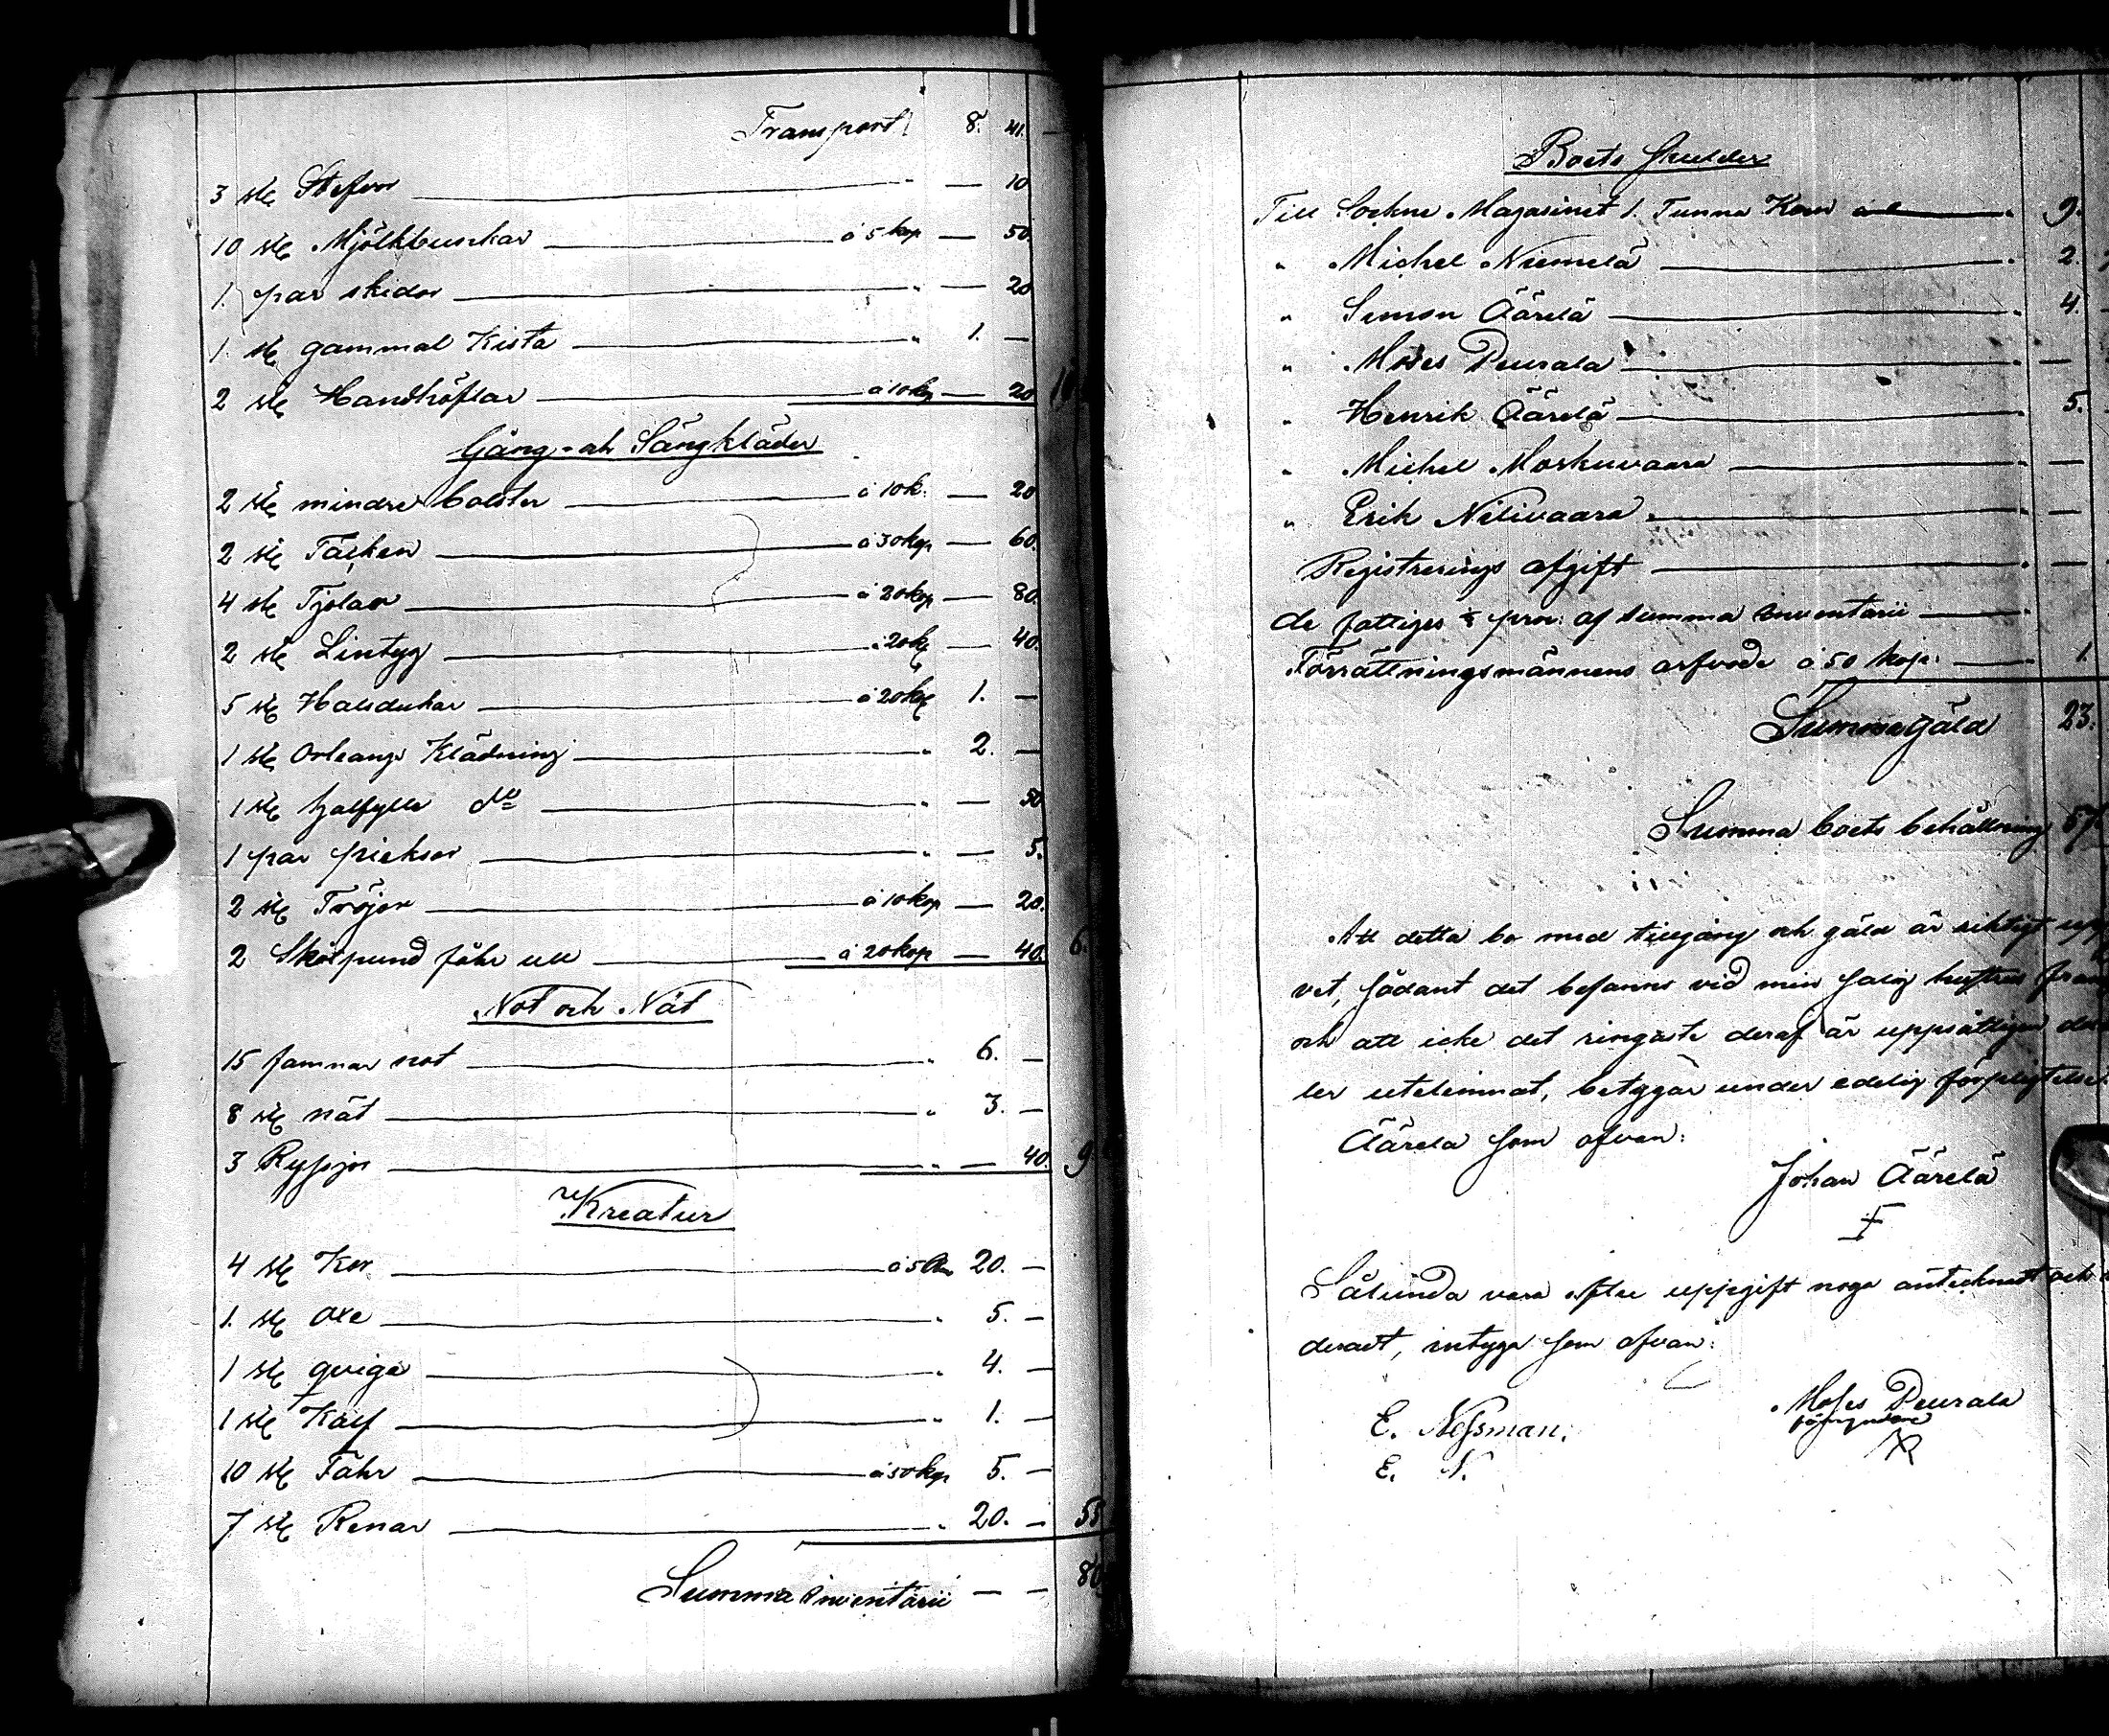 Transport 8. 41. —
3 st Stefvor — 10
10 st Mjölkbunkar à 5 kop — 50
1. par skidor " — 20
1. st gammal Kista " 1. —
2 st Handhöflar à 10 kop — 20
Gång- och Sängkläder
2 st mindre bolster à 10 k. — 20
2 st Täcken à 30 kop — 60.
4 st Tjolar à 20 kop — 80.
2 st Lintyg à 20 k — 40.
5 st Halsdukar à 20 kop 1. —
1 st Orleangs Klädning " 2. —
1 st halfylle d:o " — 50
1 par pieksor " — 5.
2 st Tröjor à 10 kop — 20.
2 Skålpund fåhr ull à 20 kop — 40. 6.
Not och Nät
15 famnar not " 6. —
8 st nät " 3. —
3 Ryssjor " — 40. 9
Kreatur
4 st Kor à 5 Ru 20. —
1. st oxe " 5. —
1 st qviga " 4. —
1 st Kalf " 1. —
10 st Fåhr à 50 kop 5. —
7 st Renar " 20. — 55
Summa Inventarii — — 80
Boets skulder
Till Sockne Magasinet 1. Tunna Korn 9.
" Michel Niemelä 2
" Simon Äärelä 4.
" Moses Peurala —
" Henrik Äärelä 5.
" Michel Moskuvaara —
" Erik Nilivaara —
Registrerings afgift —
de fattiges proc: af summa Inventarii
Förrättningsmännens arfvode à 50 kop: 1.
Summa gäld 23.
Summa boets behållning 57
Att detta bo med tillgång och gäld är riktigt upp
vet, sådant det befanns vid min salig hustrus från
och att icke det ringaste deraf är uppsåtligen
ler utelemnat, betygar under edelig förpligtelse.
Äärela som ofvan:
Johan Äärelä
Sålunda vara efter uppgift noga antecknadt och
deradt, intyga som ofvan:
E. Nessman. Moses Peurala
E. N.